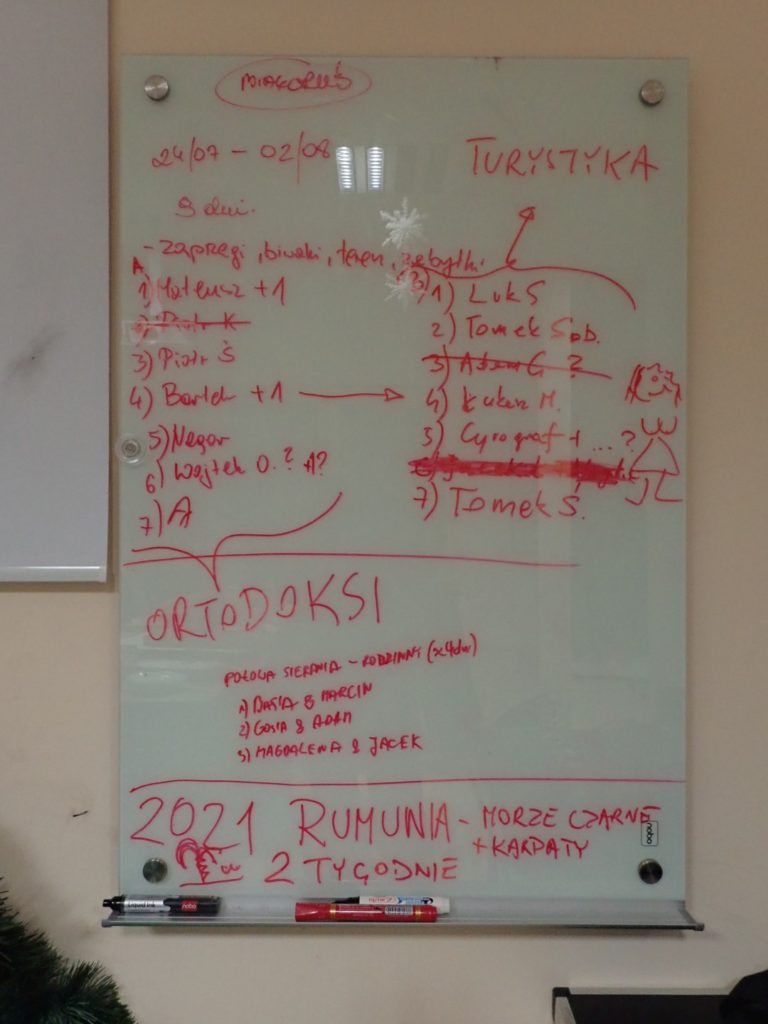 24/07 - 02/08
TURYSTYKA
9 dni.
- zaprzęgi, biwaki, teren, zabytki.
A
1) Mateusz +1
2) Piotr K
3) Piotr Ś
4) Bartek +1
5) Negor
6) Wojtek O. ? A?
7) A
1) LukS
2) Tomek Sob.
3) Adam G ?
4) M.
5) Cyrograf + ... ?
6)
7) Tomek Ś.
ORTODOKSI
POŁOWA SIERPNIA - RODZINNY (x4dw)
1) BASIA & MARCIN
2) GOSIA & ADAM
3) MAGDALENA & JACEK
2021 RUMUNIA - MORZE CZARNE
+ KARPATY
2 TYGODNIE
nobo
Liquid Ink nobo